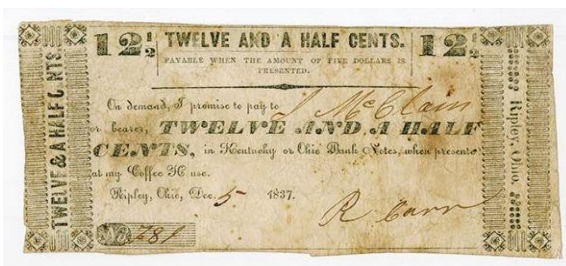 12½ TWELVE AND A HALF CENTS. 12½
PAYABLE WHEN THE AMOUNT OF FIVE DOLLARS IS
PRESENTED.
On demand, I promise to pay to J McClain
or bearer, TWELVE AND A HALF
CENTS, in Kentucky or Ohio Bank Notes, when presente
at my Coffee House.
Ripley, Ohio, Dec. 5 1837.
R Carr
No 781
TWELVE & A HALF CNTS.
Ripley, Ohio